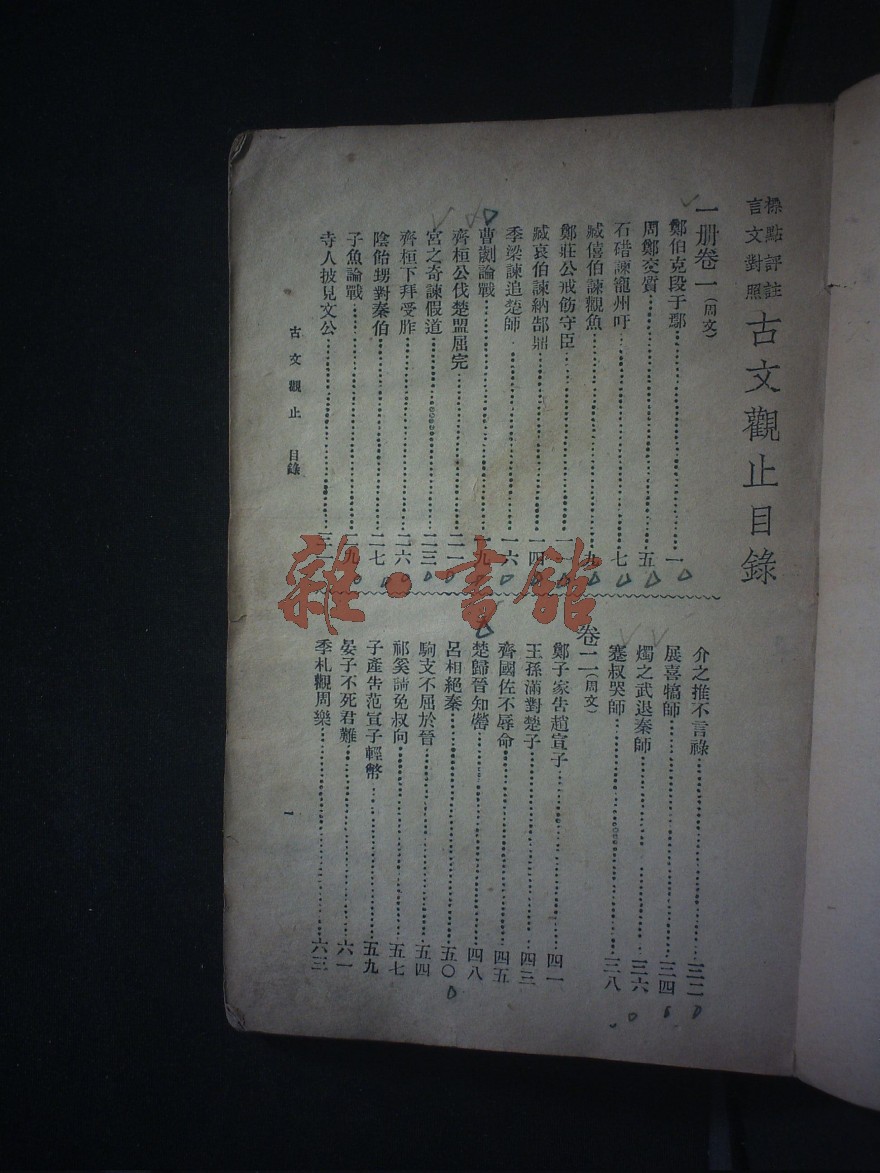 標點評註
言文對照
古文觀止目錄
一册卷一（周文）
鄭伯克段于鄢……一
周鄭交質……五
石碏諫寵州吁……七
臧僖伯諫觀魚……九
鄭莊公戒飭守臣……一一
臧哀伯諫納郜鼎……一四
季梁諫追楚師……一六
曹劌論戰……一九
齊桓公伐楚盟屈完……二一
宮之奇諫假道……二三
齊桓下拜受胙……二六
陰飴甥對秦伯……二七
子魚論戰……二九
寺人披見文公……三一
介之推不言祿……三二
展喜犒師……三四
燭之武退秦師……三六
蹇叔哭師……三八
卷二（周文）
鄭子家告趙宣子……四一
王孫滿對楚子……四三
齊國佐不辱命……四五
楚歸晉知罃……四八
呂相絕秦……五〇
駒支不屈於晉……五四
祁奚請免叔向……五七
子產告范宣子輕幣……五九
晏子不死君難……六一
季札觀周樂……六三
古文觀止 目錄
一
雜·書館